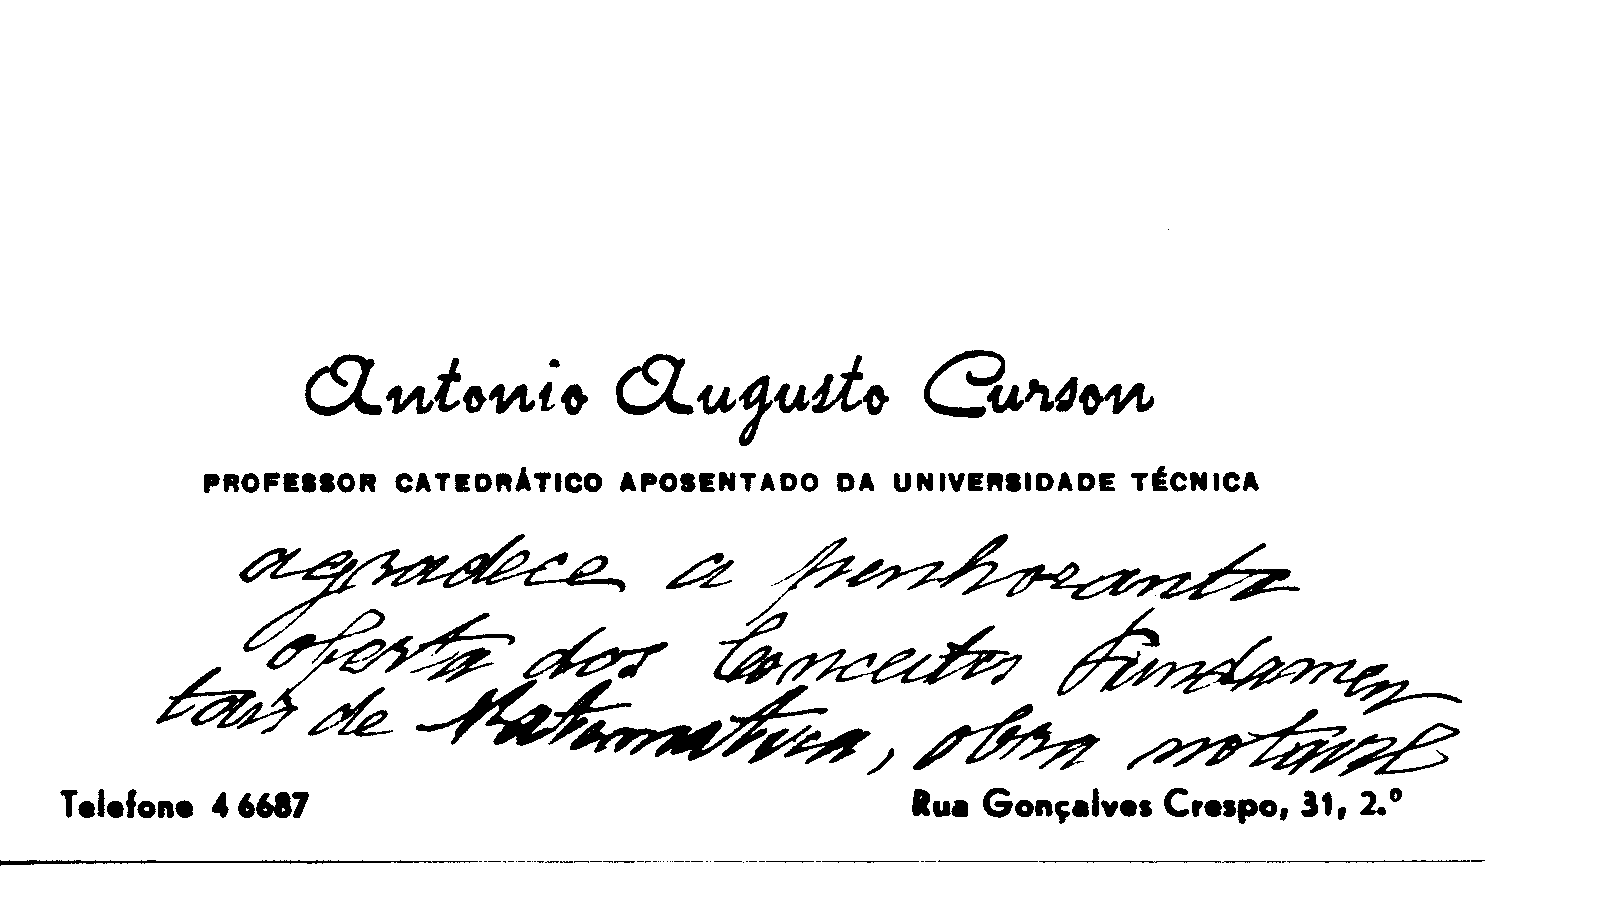 Antonio Augusto Curson
PROFESSOR CATEDRÁTICO APOSENTADO DA UNIVERSIDADE TÉCNICA
agradece a penhorante
oferta dos Conceitos Fundamen
tais de Matematica, obra notavel
Telefone 4 6687 Rua Gonçalves Crespo, 31, 2.º